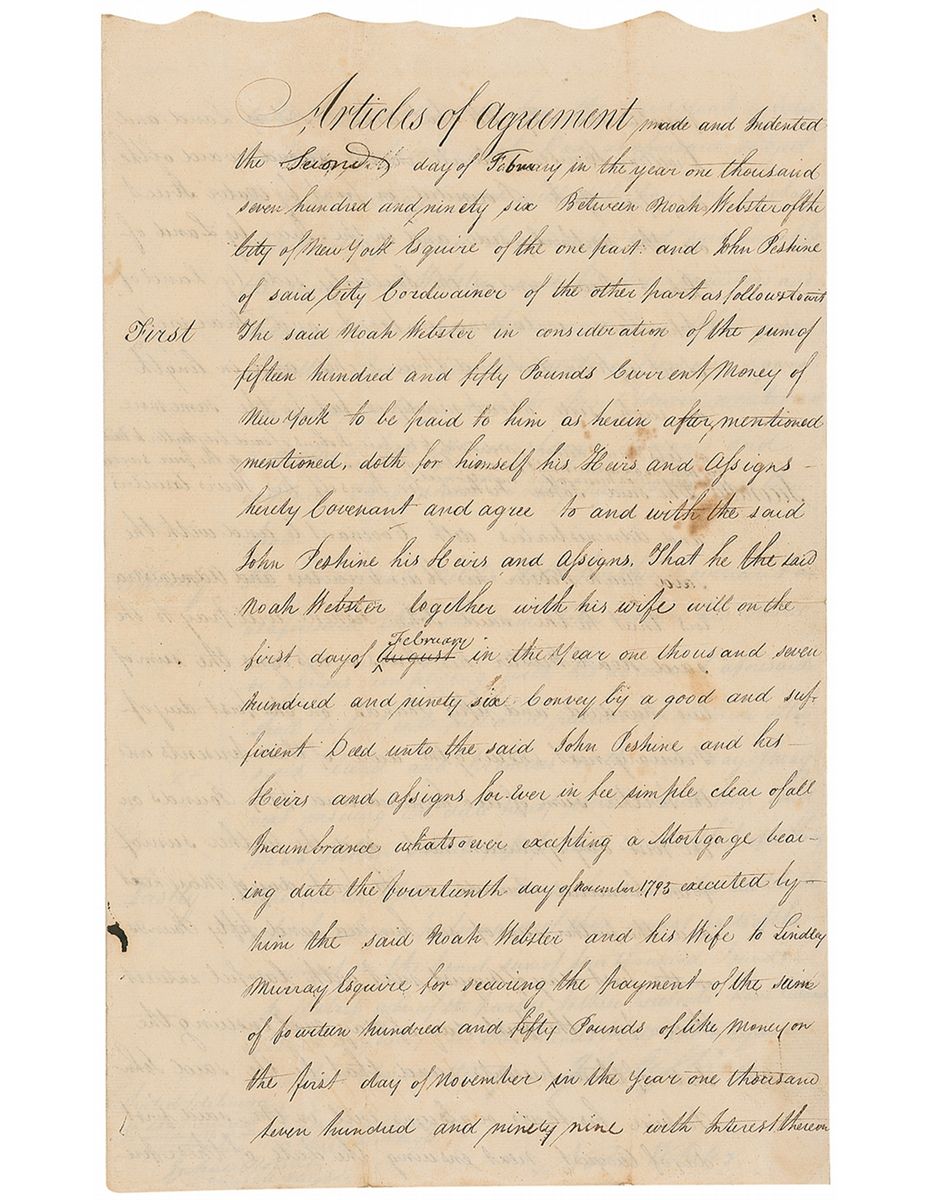 Articles of Agreement made and Indented
the Second day of February in the year one thousand
seven hundred and ninety six Between Noah Webster of the
City of New York Esquire of the one part: and John Peshine
of said City Cordwainer of the other part as follows to wit
First The said Noah Webster in consideration of the sum of
fifteen hundred and fifty Pounds Current Money of
New York to be paid to him as herein after, mentioned
mentioned, doth for himself his Heirs and Assigns –
hereby Covenant and agree to and with the said
John Peshine his Heirs and Assigns. That he the said
Noah Webster together with his wife will on the
February
first day of August in the Year one thousand seven
hundred and ninety six Convey by a good and suf-
ficient Deed unto the said John Peshine and his –
Heirs and assigns for-ever in fee simple clear of all
Incumbrance whatsoever excepting a Mortgage bear-
ing date the fourteenth day of November 1795 executed by –
him the said Noah Webster and his Wife to Lindley
Murray Esquire for securing the payment of the sum
of fourteen hundred and fifty Pounds of like Money on
the first day of November in the Year one thousand
seven hundred and ninety nine with Interest thereon